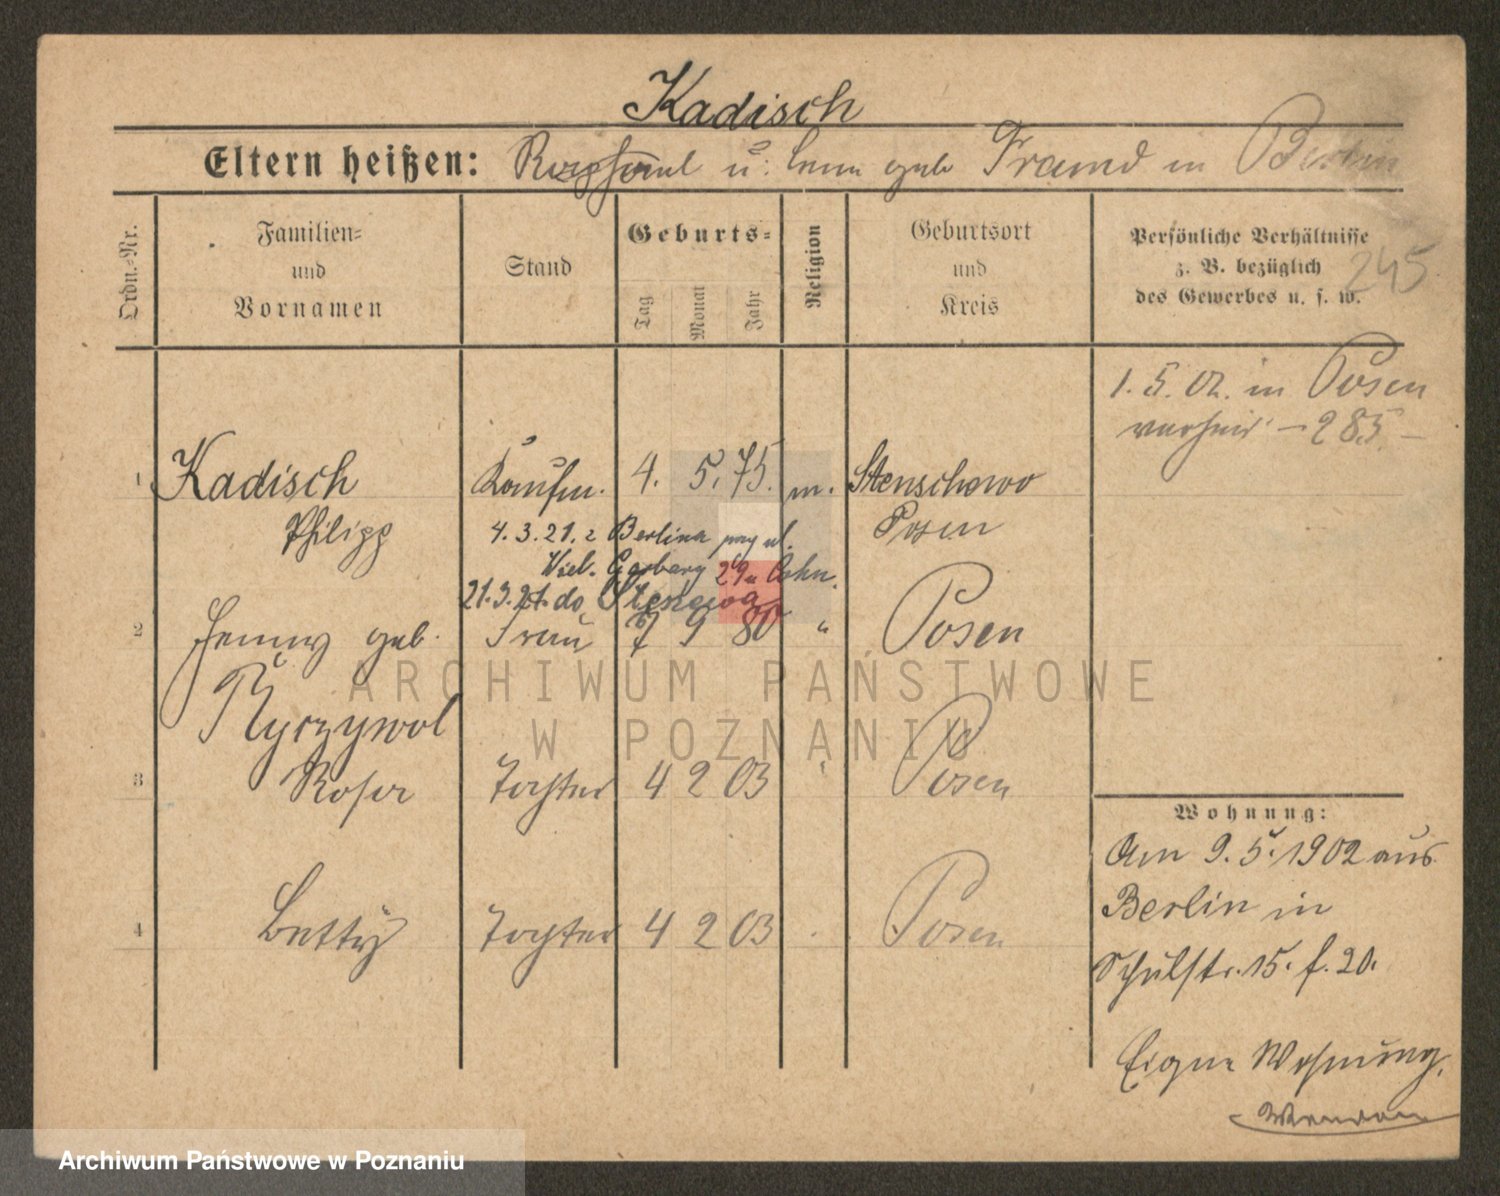 Kadisch
Eltern heißen: u. geb Freund in Berlin
Ordn.-Nr.
Familien-
und
Vornamen
Stand
Geburts-
Tag
Monat
Jahr
Religion
Geburtsort
und
Kreis
Persönliche Verhältnisse
z. B. bezüglich
des Gewerbes u. s. w.
245
1. 5. 02. in Posen
verheir – 285 –
1 Kadisch Kaufm. 4. 5. 75. m. Stenschewo
Philipp Posen
4. 3. 21. z Berlina przy ul.
Wiel. Garbary Cohn.
21.3.21. do Stenewa
2 Jenny geb. Frau 7 9 80 " Posen
Ryczywol
3 Rosa Tochter 4 2 03 Posen
4 Betty Tochter 4 2 03 Posen
Wohnung:
Am 9. 5. 1902 aus
Berlin in
Schulstr. 15. f. 20.
Eigene Wohnung.
ARCHIWUM PAŃSTWOWE
W POZNANIU
Archiwum Państwowe w Poznaniu